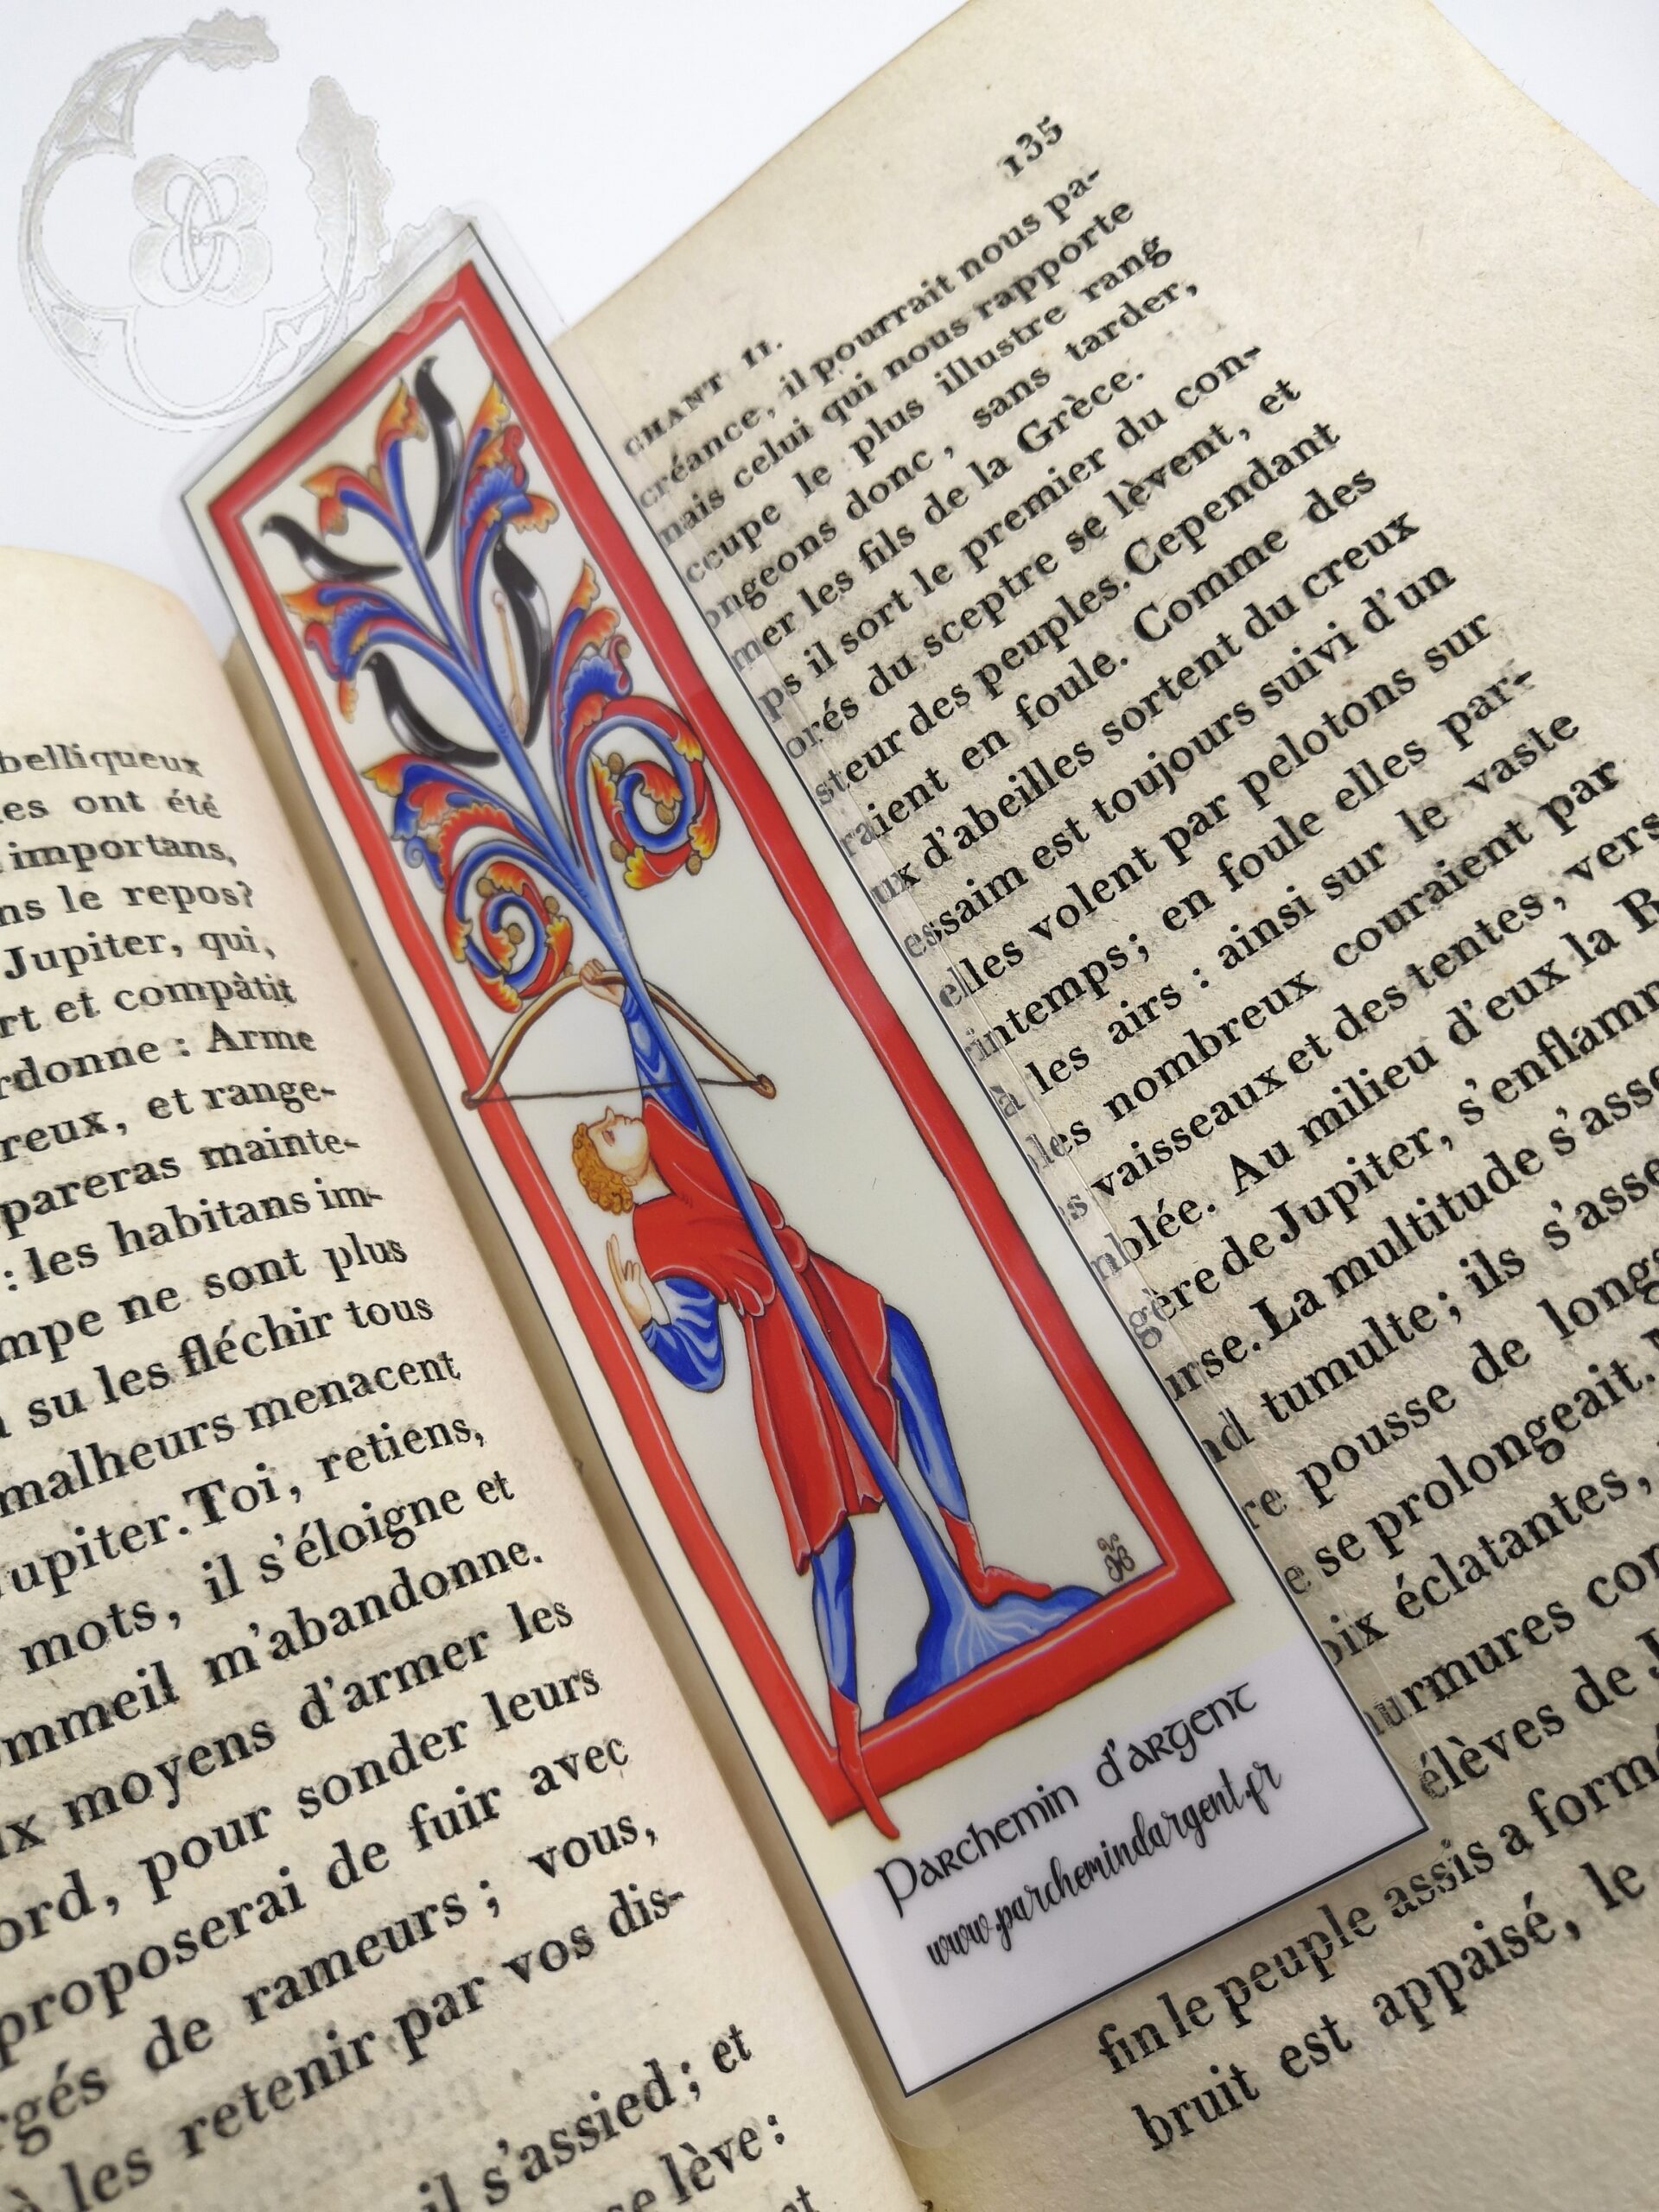 belliqueux
es ont été
importans,
ns le repos?
Jupiter, qui,
rt et compâtit
rdonne : Arme
reux, et range-
pareras mainte-
: les habitans im-
mpe ne sont plus
su les fléchir tous
malheurs menacent
upiter. Toi, retiens,
mots, il s'éloigne et
ommeil m'abandonne.
x moyens d'armer les
ord, pour sonder leurs
proposerai de fuir avec
rgés de rameurs; vous,
à les retenir par vos dis-
il s'assied; et
se lève:
et
135
CHANT II.
créance, il pourrait nous pa-
mais celui qui nous rapporte
occupe le plus illustre rang
ongeons donc, sans tarder,
mer les fils de la Grèce.
ps il sort le premier du con-
orés du sceptre se lèvent, et
steur des peuples. Cependant
raient en foule. Comme des
ux d'abeilles sortent du creux
essaim est toujours suivi d'un
elles volent par pelotons sur
rintemps; en foule elles par-
à les airs : ainsi sur le vaste
les nombreux couraient par
s vaisseaux et des tentes, vers
mblée. Au milieu d'eux la R
gère de Jupiter, s'enflamm
urse. La multitude s'asse
nd tumulte; ils s'asse
re pousse de longs
e se prolongeait.
oix éclatantes,
urmures con
élèves de J
fin le peuple assis a formé
bruit est appaisé, le
Parchemin d'argent
www.parchemindargent.fr